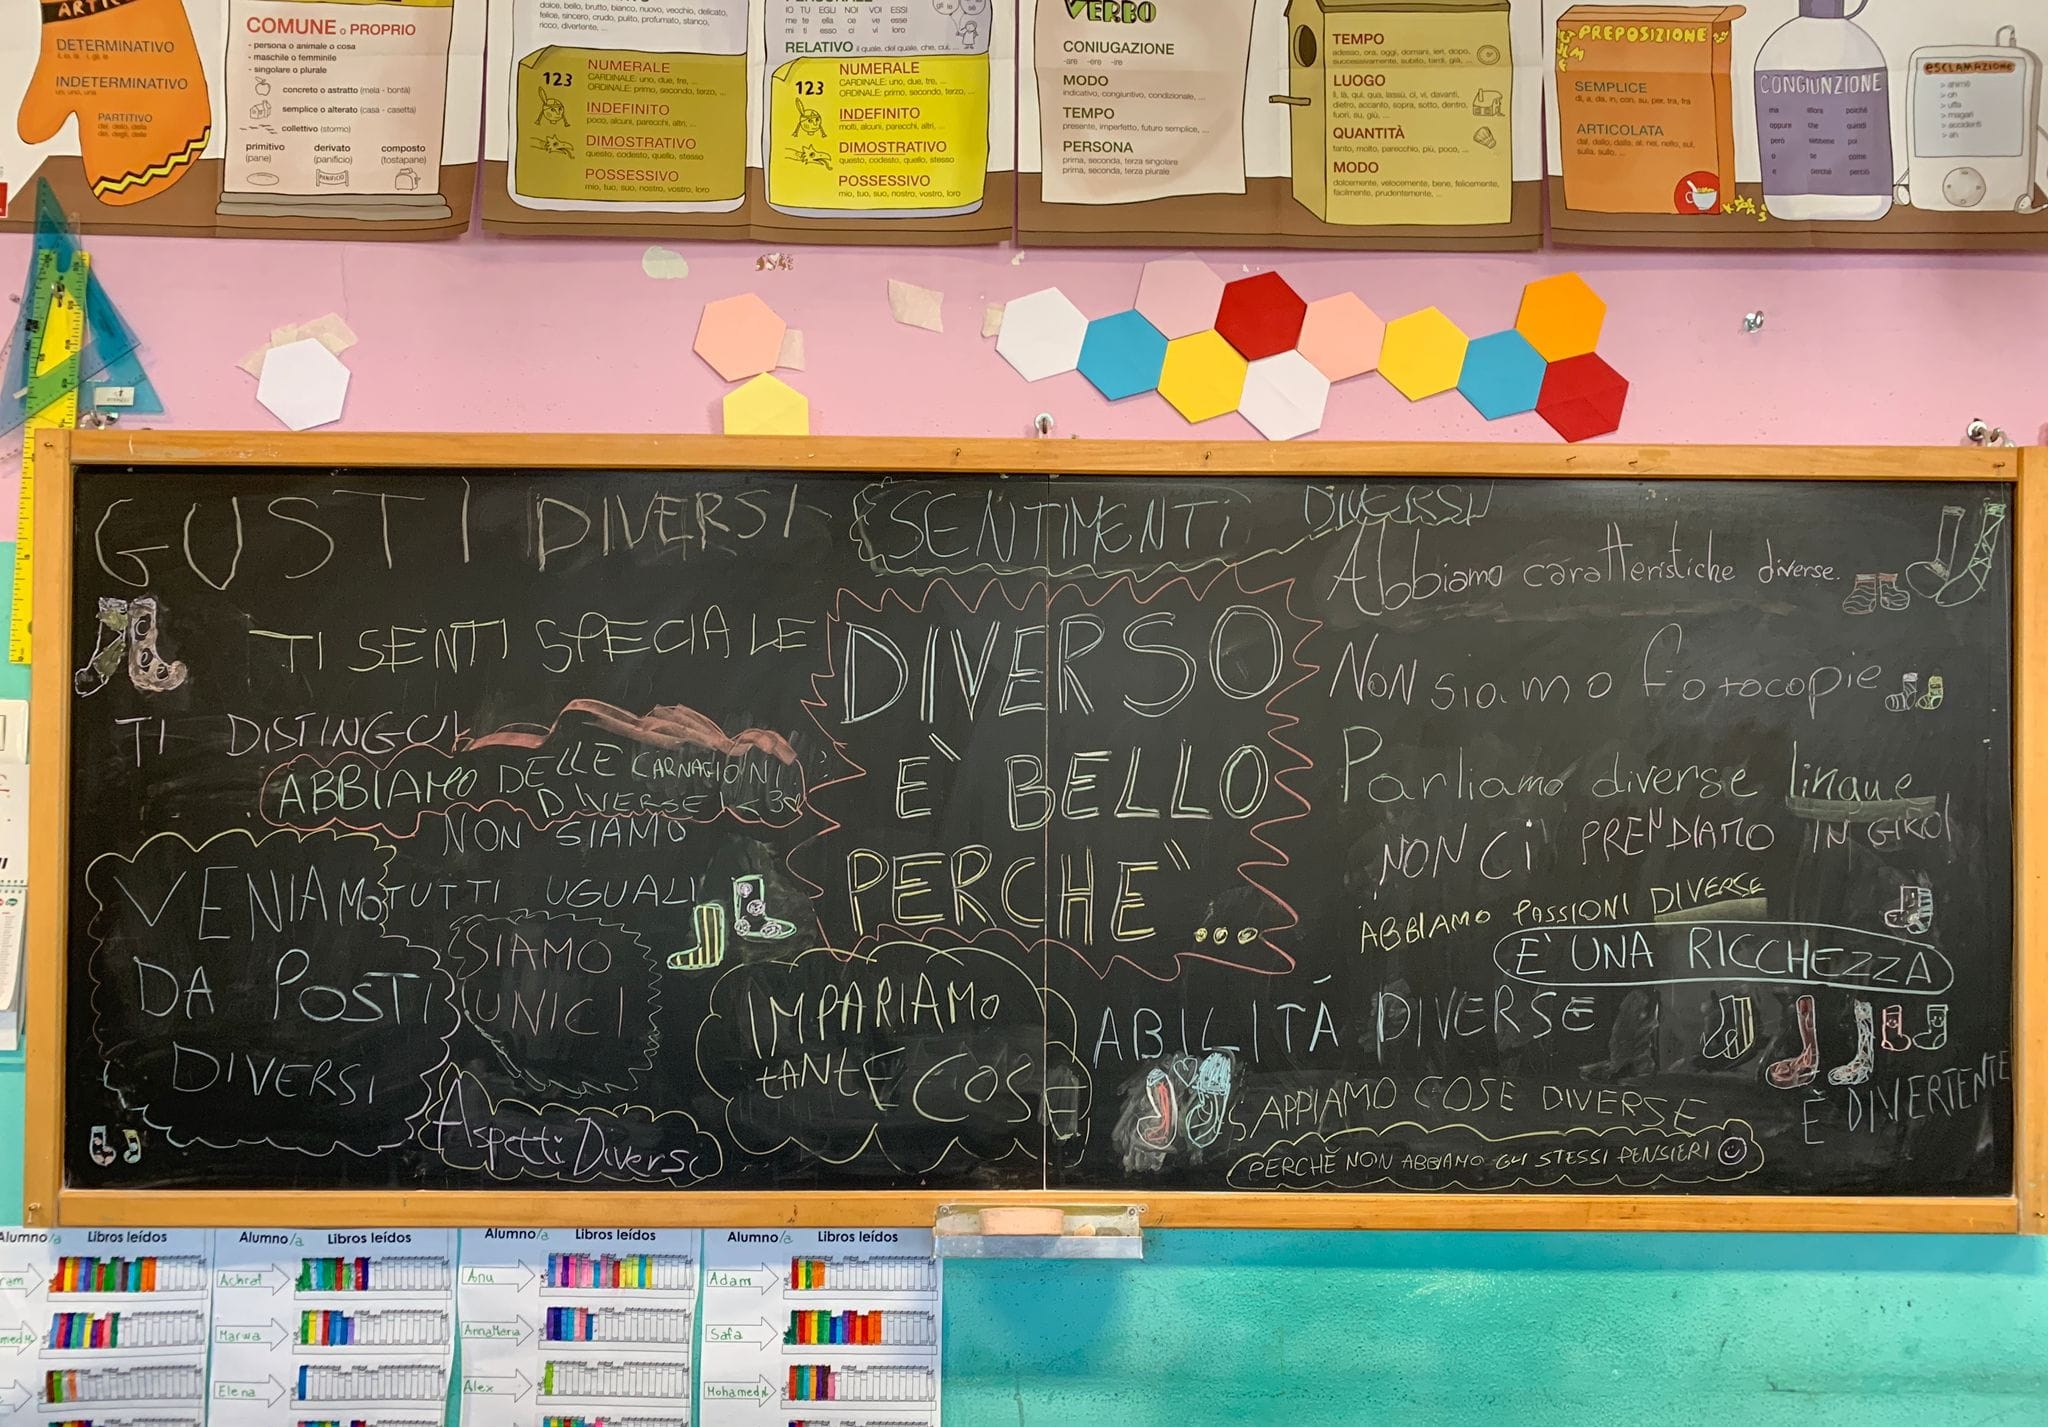 DETERMINATIVO
INDETERMINATIVO
un, uno, una
PARTITIVO
del, dello, della
dei, degli, delle
COMUNE o PROPRIO
- persona o animale o cosa
- maschile o femminile
- singolare o plurale
concreto o astratto (mela - bontà)
semplice o alterato (casa - casetta)
collettivo (stormo)
primitivo derivato composto
(pane) (panificio) (tostapane)
PANIFICIO
dolce, bello, brutto, bianco, nuovo, vecchio, delicato,
felice, sincero, crudo, pulito, profumato, stanco,
ricco, divertente, ...
123
NUMERALE
CARDINALE: uno, due, tre, ...
ORDINALE: primo, secondo, terzo, ...
INDEFINITO
poco, alcuni, parecchi, altri, ...
DIMOSTRATIVO
questo, codesto, quello, stesso
POSSESSIVO
mio, tuo, suo, nostro, vostro, loro
IO TU EGLI NOI VOI ESSI
me te ella ce ve esse
mi ti esso ci vi loro
RELATIVO il quale, del quale, che, cui, ...
123
NUMERALE
CARDINALE: uno, due, tre, ...
ORDINALE: primo, secondo, terzo, ...
INDEFINITO
molti, alcuni, parecchi, altri, ...
DIMOSTRATIVO
questo, codesto, quello, stesso
POSSESSIVO
mio, tuo, suo, nostro, vostro, loro
VERBO
CONIUGAZIONE
-are -ere -ire
MODO
indicativo, congiuntivo, condizionale, ...
TEMPO
presente, imperfetto, futuro semplice, ...
PERSONA
prima, seconda, terza singolare
prima, seconda, terza plurale
TEMPO
adesso, ora, oggi, domani, ieri, dopo,
successivamente, subito, tardi, già, ...
LUOGO
lì, là, qui, qua, lassù, ci, vi, davanti,
dietro, accanto, sopra, sotto, dentro,
fuori, su, giù, ...
QUANTITÀ
tanto, molto, parecchio, più, poco, ...
MODO
dolcemente, velocemente, bene, felicemente,
facilmente, prudentemente, ...
PREPOSIZIONE
SEMPLICE
di, a, da, in, con, su, per, tra, fra
ARTICOLATA
dal, dallo, dalla, al, nei, nello, sul,
sulla, sullo, ...
CONGIUNZIONE
ma allora poiché
oppure che quindi
però sebbene poi
o se come
e perché perciò
ESCLAMAZIONE
> ahimè
> oh
> uffa
> magari
> accidenti
> ah
GUSTI DIVERSI
SENTIMENTI DIVERSI
Abbiamo caratteristiche diverse.
TI SENTI SPECIALE
DIVERSO
È BELLO
PERCHÈ ...
Non siamo fotocopie
TI DISTINGUI
ABBIAMO DELLE CARNAGIONI
DIVERSE! <3
Parliamo diverse lingue
NON CI PRENDIAMO IN GIRO!
NON SIAMO
TUTTI UGUALI
VENIAMO
DA POSTI
DIVERSI
SIAMO
UNICI
ABBIAMO PASSIONI DIVERSE
E' UNA RICCHEZZA
IMPARIAMO
TANTE COSE
ABILITÁ DIVERSE
Aspetti Diversi
SAPPIAMO COSE DIVERSE
È DIVERTENTE
PERCHÈ NON ABBIAMO GLI STESSI PENSIERI
Alumno/a Libros leídos
Alumno/a Libros leídos
Achraf
Marwa
Elena
Alumno/a Libros leídos
Anu
AnnaMaria
Alex
Alumno/a Libros leídos
Adam
Safa